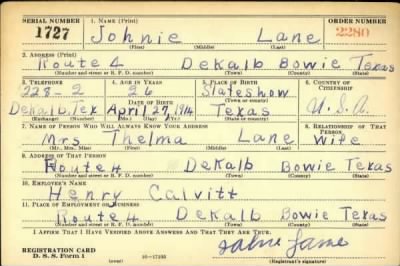 SERIAL NUMBER 1. NAME (Print) ORDER NUMBER
1727 Johnie Lane 2280
(First) (Middle) (Last)
2. ADDRESS (Print)
Route 4 DeKalb Bowie Texas
(Number and street or R. F. D. number) (Town) (County) (State)
3. TELEPHONE 4. AGE IN YEARS 5. PLACE OF BIRTH 6. COUNTRY OF CITIZENSHIP
228-2 26 Slateshow
DATE OF BIRTH (Town or county)
DeKalb, Tex April 27, 1914 Texas U.S.A.
(Exchange) (Number) (Mo.) (Day) (Yr.) (State or country)
7. NAME OF PERSON WHO WILL ALWAYS KNOW YOUR ADDRESS 8. RELATIONSHIP OF THAT PERSON
Mrs Thelma Lane Wife
(Mr., Mrs., Miss) (First) (Middle) (Last)
9. ADDRESS OF THAT PERSON
Route 4 DeKalb Bowie Texas
(Number and street or R. F. D. number) (Town) (County) (State)
10. EMPLOYER'S NAME
Henry Calvitt
11. PLACE OF EMPLOYMENT OR BUSINESS
Route 4 DeKalb Bowie Texas
(Number and street or R. F. D. number) (Town) (County) (State)
I AFFIRM THAT I HAVE VERIFIED ABOVE ANSWERS AND THAT THEY ARE TRUE.
REGISTRATION CARD Johnie Lane
D. S. S. Form 1 (over) 16—17105 (Registrant's signature)